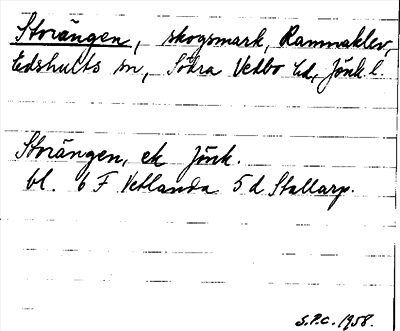 Storängen, skogsmark, Rammaklev,
Edshults sn, Södra Vedbo hd, Jönk. l.
Storängen, ek Jönk.
bl. 6 F Vetlanda 5 d Stallarp.
S.P.C. 1958.